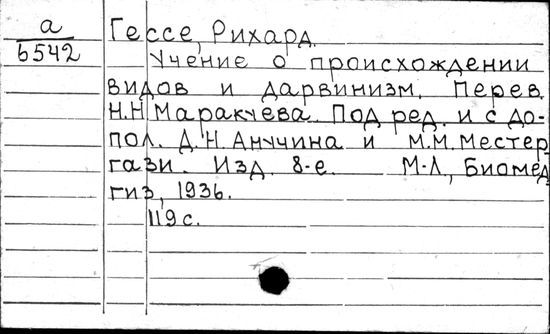 а
6542
Гессе, Рихард.
Учение о происхождении
видов и дарвинизм. Перев.
Н.Н Маракуева. Под ред. и с до-
пол. Д.Н. Анучина и М.М. Местер-
гази. Изд. 8-е. М-Л., Биомед
гиз, 1936.
119 с.